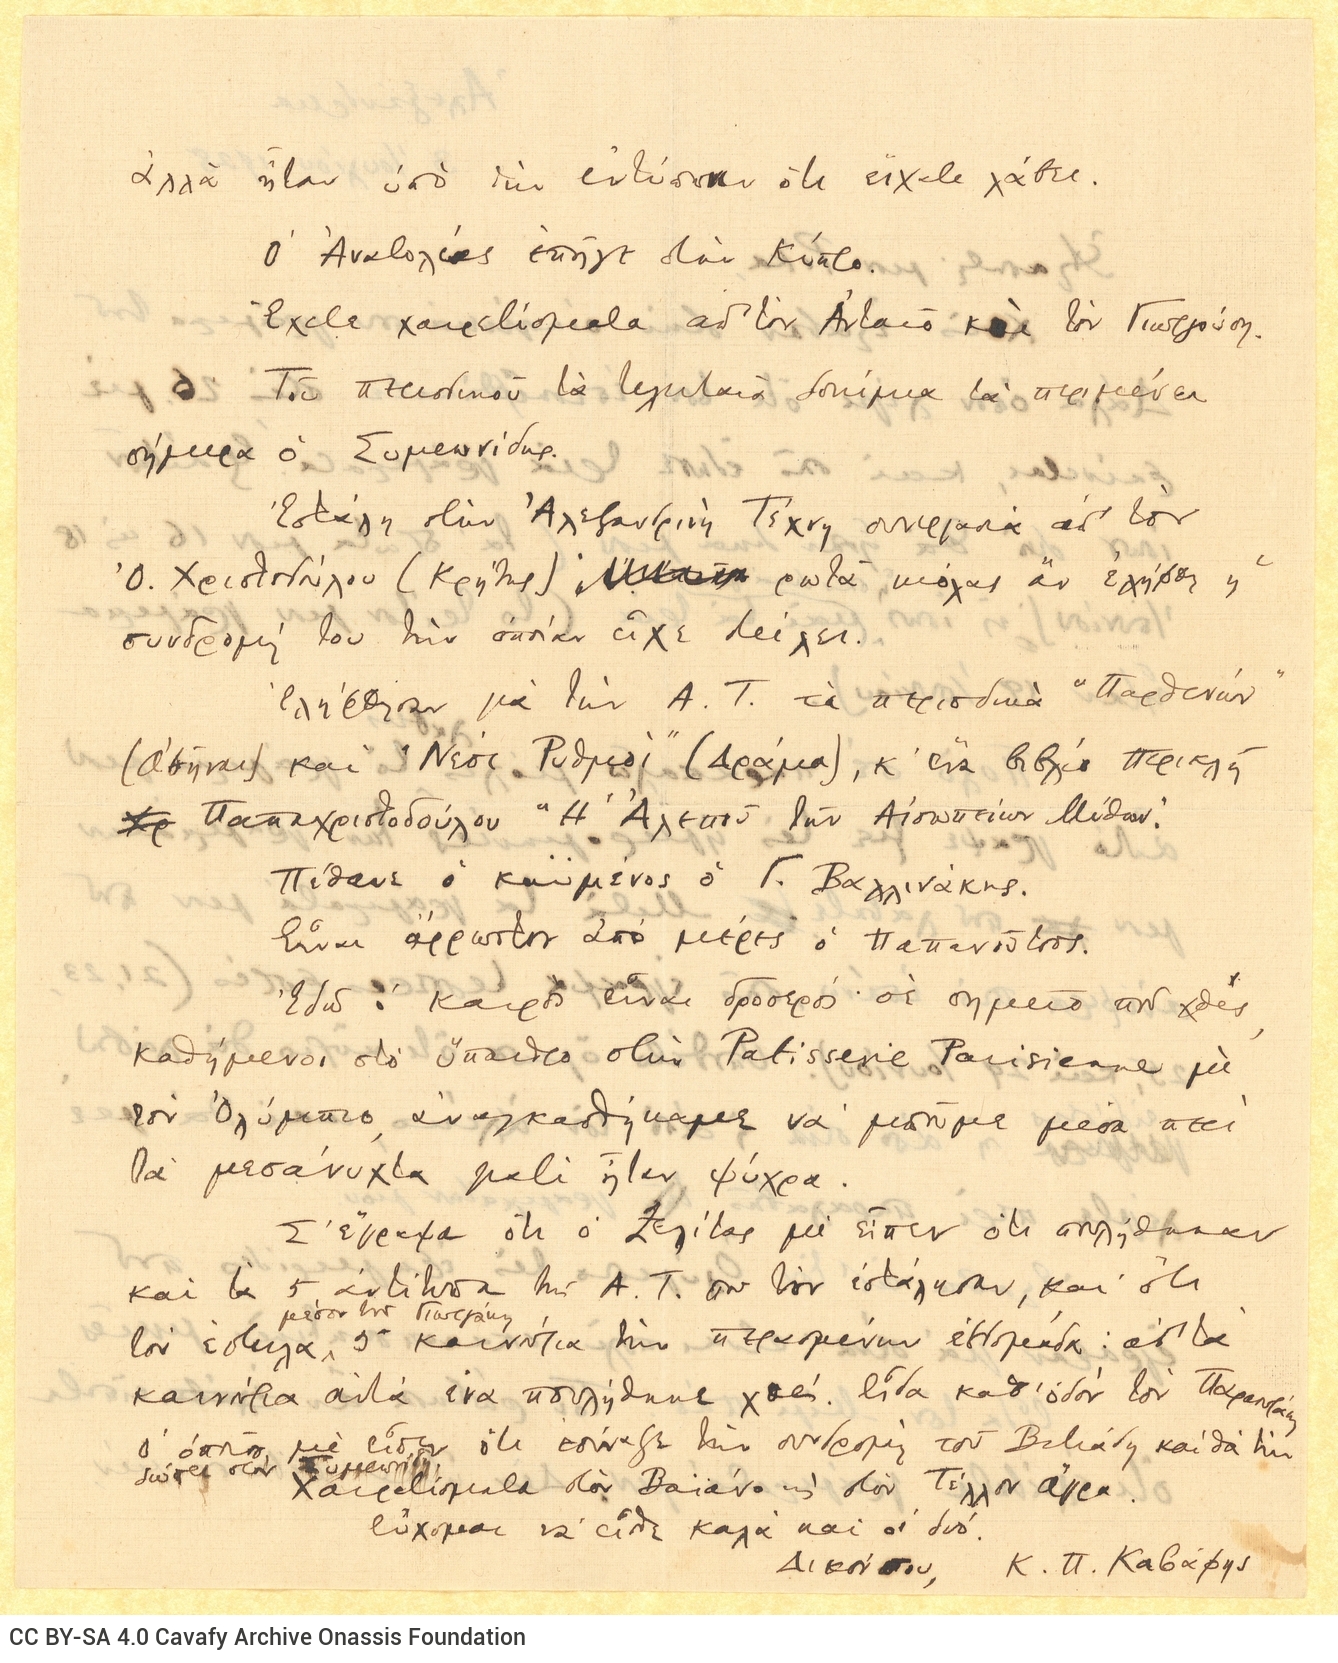 ἀλλὰ ἦταν ὑπὸ τὴν ἐντύπωσιν ὅτι εἴχατε λάβει.
Ὁ Ἀνατολέας ἐπῆγε στὴν Κύπρο.
Ἔχετε χαιρετίσματα ἀπ' τὸν Ἀνταῖο καὶ τὸν
Τοῦ περιοδικοῦ τὰ τελευταῖα δοκίμια τὰ περιμένει
σήμερα ὁ Συμεωνίδης.
Ἐστάλη στὴν Ἀλεξανδρινὴ Τέχνη συνεργασία ἀπ' τὸν
Ὀ. Χριστοδούλου (Κρήτης) ρωτᾶ κιόλας ἂν ἐλήφθη ἡ
συνδρομή του τὴν ὁποίαν εἶχε στείλει.
Ἐλήφθησαν γιὰ τὴν Α. Τ. τὰ περιοδικὰ "Παρθενών"
(Ἀθῆναι) καὶ "Νέοι Ρυθμοὶ" (Δράμα), κ' ἕνα βιβλίο Περικλῆ
Χρ Παπαχριστοδούλου "Ἡ Ἀλεποῦ τῶν Αἰσωπείων Μύθων".
Πέθανε ὁ καϋμένος ὁ Γ. Βαλλινάκης.
Εἶναι ἄρρωστος ἀπὸ μέρες ὁ Παπανοῦτσος.
Ἐδῶ ὁ καιρὸς εἶναι δροσερός· σὲ σημεῖο ποὺ χθές,
καθήμενοι στὸ ὕπαιθρο στὴν Patisserie Parisienne μὲ
τὸν Ὀλύμπιο, ἀναγκασθήκαμε νὰ μποῦμε μέσα περὶ
τὰ μεσάνυχτα γιατὶ ἦταν ψύχρα.
Σ' ἔγραψα ὅτι ὁ Ζελίτας μὲ εἶπεν ὅτι πουλήθηκαν
καὶ τὰ 5 ἀντίτυπα τῆς Α. Τ. ποὺ τὸν ἐστάλησαν, καὶ ὅτι
μέσον τοῦ
τὸν ἔστειλα, 5 καινούρια τὴν περασμένην ἑβδομάδα: ἀπ' τὰ
καινούρια αὐτὰ ἕνα πουλήθηκε χθές. Εἶδα καθ' ὁδὸν τὸν
ὁ ὁποῖος μὲ εἶπεν ὅτι ἐσύναξε τὴν συνδρομὴ τοῦ καὶ θὰ τὴν
δώσει στὸν Συμεωνίδη.
Χαιρετίσματα στὸν Βαϊάνο κὶ στὸν Τέλλον Ἄγρα.
Εὔχομαι νὰ εἶσθε καλὰ καὶ οἱ δυό.
Δικός σου, Κ. Π. Καβάφης
CC BY-SA 4.0 Cavafy Archive Onassis Foundation